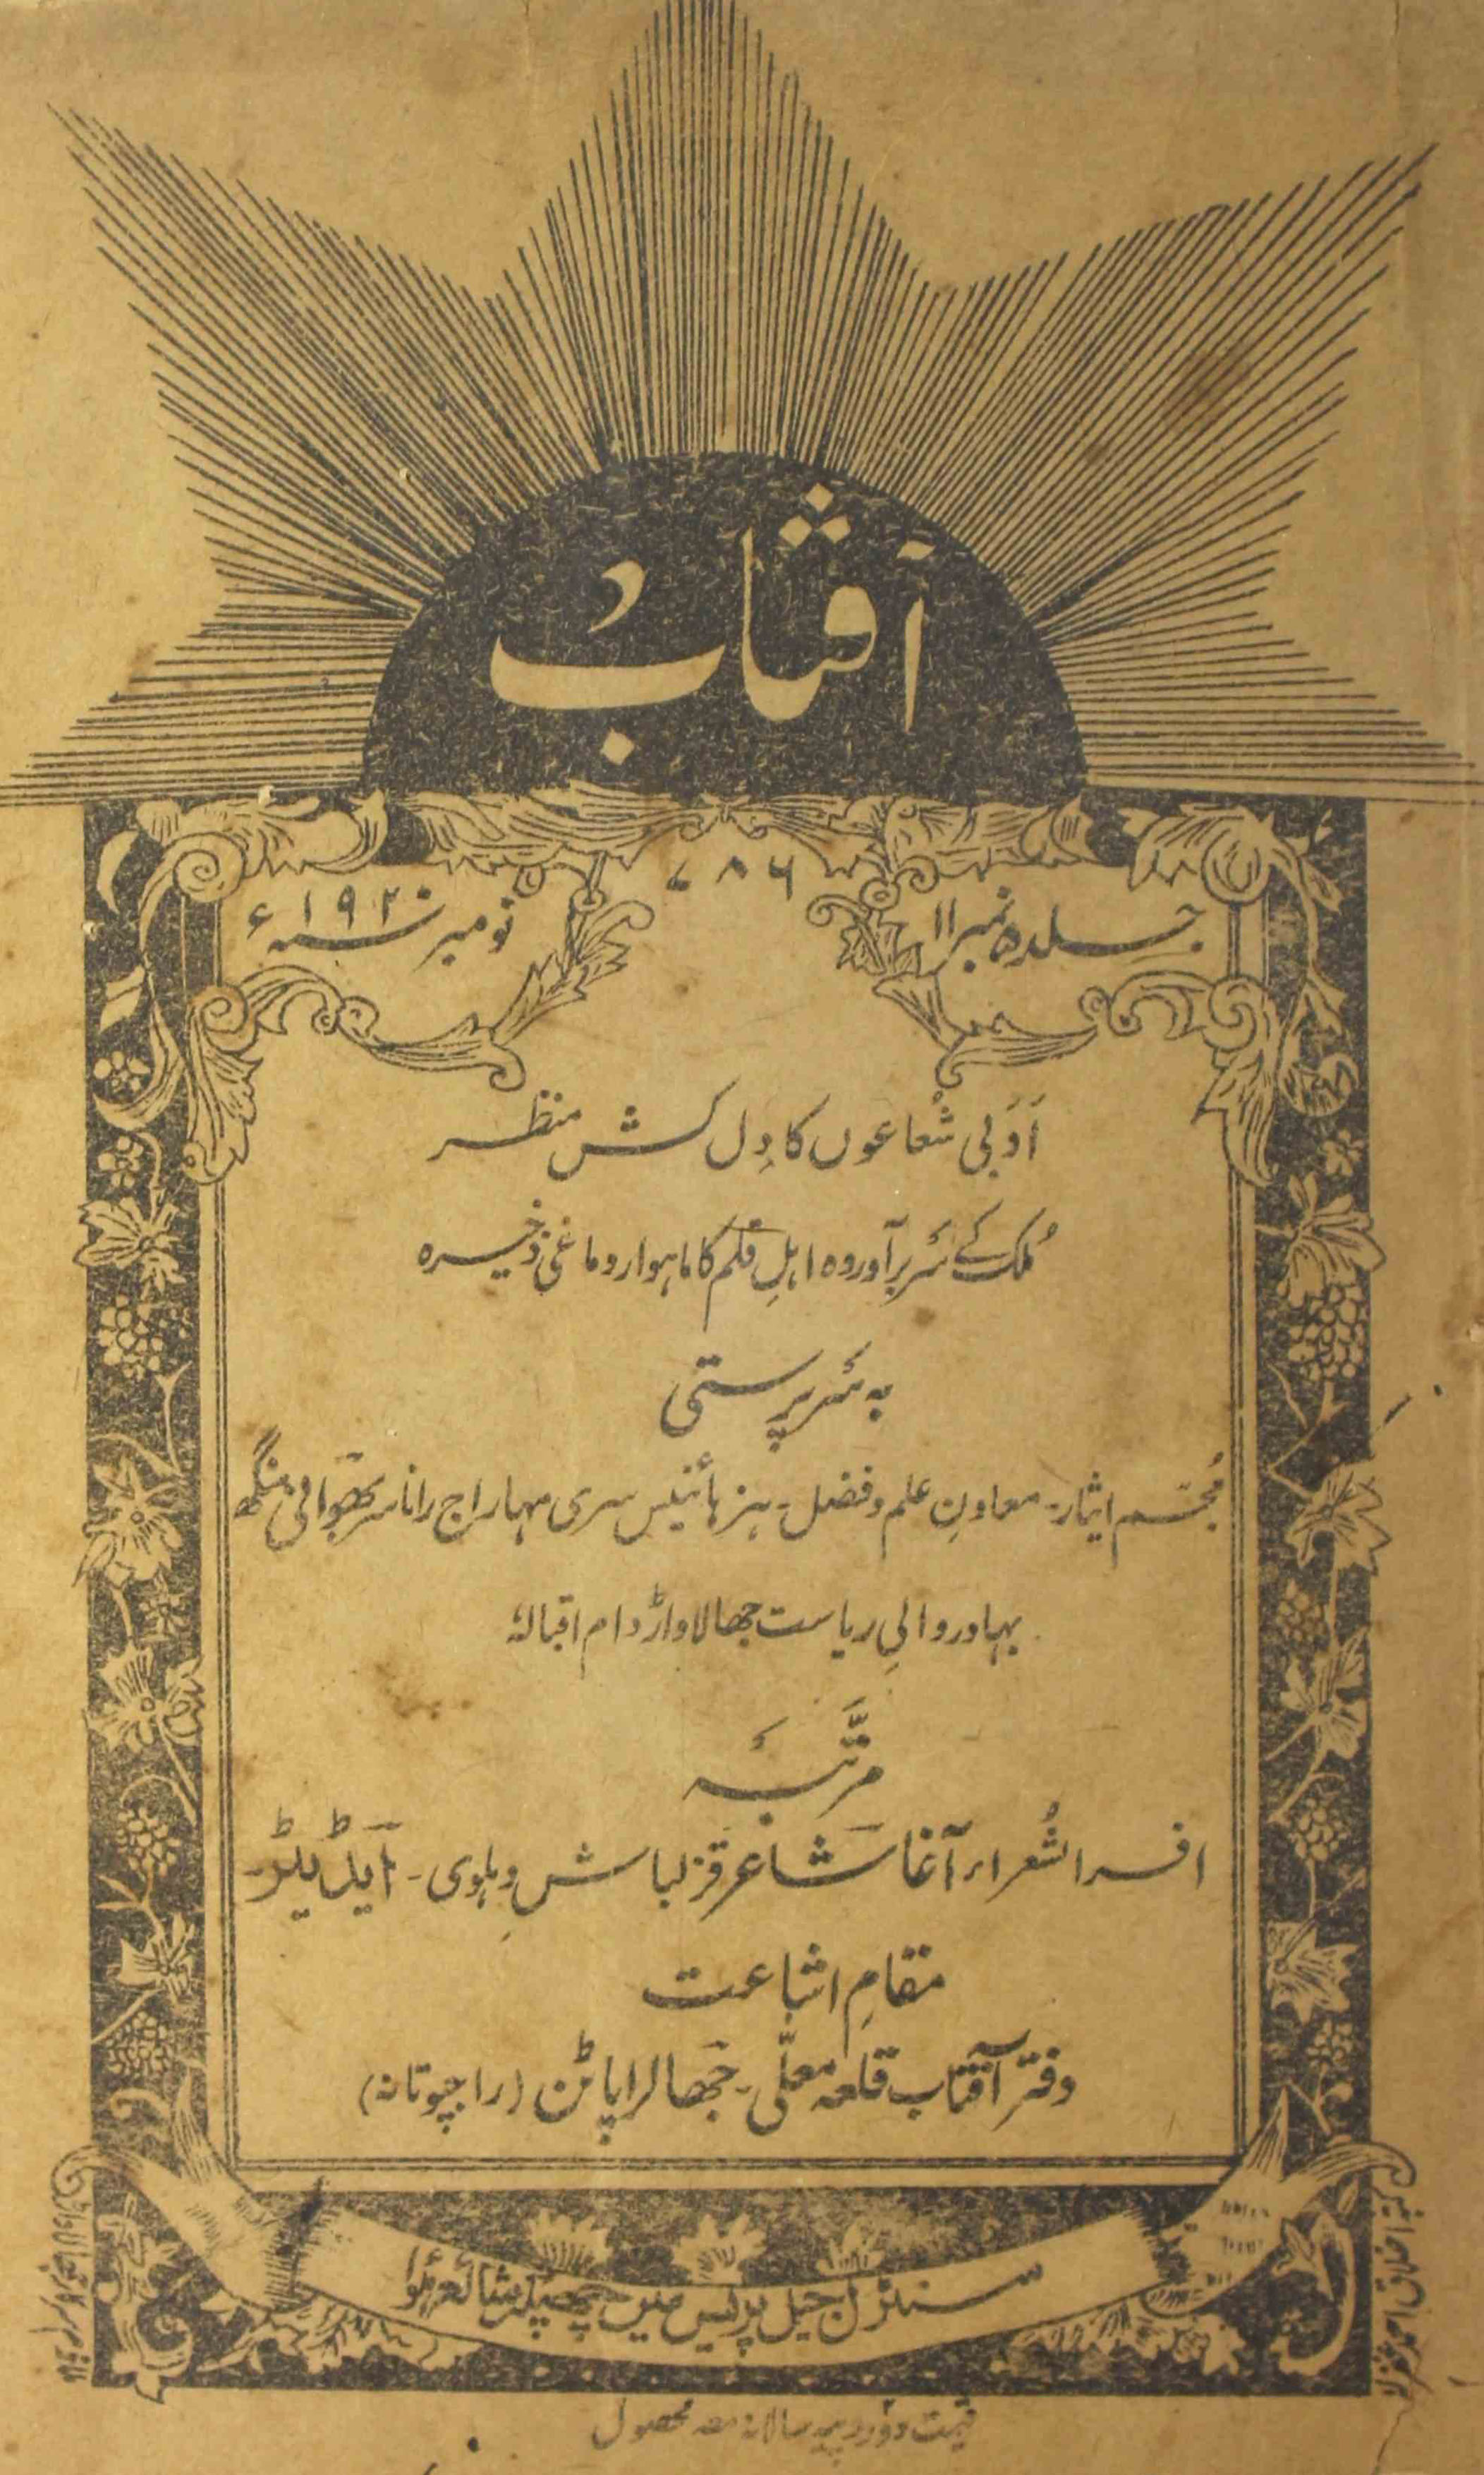 آفتاب
۷۸۶
جلد ۵ نمبر ۱۱
نومبر سنہ ۱۹۲۰ء
اَدَبی شُعاعوں کا دِل کش منظر
مُلک کے سَر برآوردہ اہلِ قلم کا ماہوار دماغی ذخیرہ
بہ سَر پرستی
مُجسّم ایثار۔ معاونِ علم و فضل۔ ہز ہائنیس سری مہاراج رانا سر بھَوانی سنگھ
بہادر والیِ ریاست جھالاواڑ دام اقبالہٗ
مرتَّبہَ
افسر الشُعراء آغا شاعر قزلباش دِہلوی۔ ایڈیٹر۔
مقامِ اشاعت
دفتر آفتاب قلعہ معلّی۔ جھالراپاٹن (راجپوتانہ)
سنٹرل جیل پریس میں چھپکر شائع ہُوا
قیمت دو روپیہ سالانہ معہ محصول